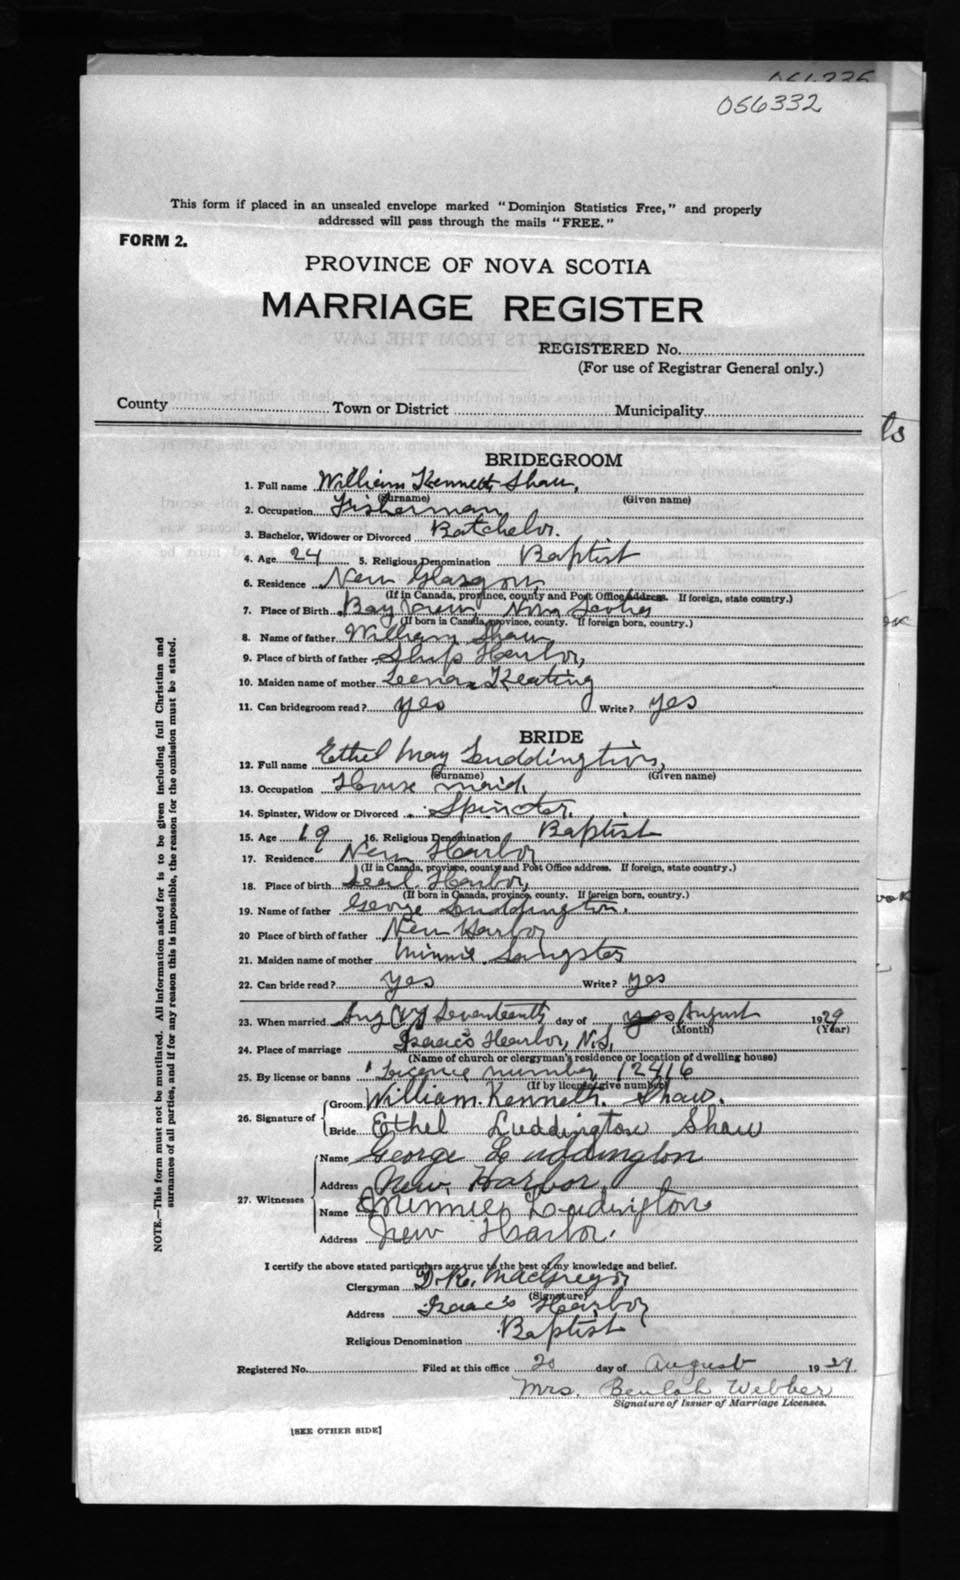 056332
This form if placed in an unsealed envelope marked "Dominion Statistics Free," and properly
addressed will pass through the mails "FREE."
FORM 2.
PROVINCE OF NOVA SCOTIA
MARRIAGE REGISTER
REGISTERED No.
(For use of Registrar General only.)
County Town or District Municipality
BRIDEGROOM
1. Full name William Kenneth Shaw,
(Surname) (Given name)
2. Occupation Fisherman
3. Bachelor, Widower or Divorced Batchelor.
4. Age 24 5. Religious Denomination Baptist
6. Residence New Glasgow,
(If in Canada, province, county and Post Office Address. If foreign, state country.)
7. Place of Birth Bay View, Nova Scotia
(If born in Canada, province, county. If foreign born, country.)
8. Name of father William Shaw
9. Place of birth of father Ship Harbor,
10. Maiden name of mother Keating
11. Can bridegroom read? yes Write? yes
BRIDE
12. Full name Ethel May Luddington,
(Surname) (Given name)
13. Occupation House maid.
14. Spinster, Widow or Divorced Spinster.
15. Age 19 16. Religious Denomination Baptist
17. Residence New Harbor
(If in Canada, province, county and Post Office address. If foreign, state country.)
18. Place of birth Seal Harbor,
(If born in Canada, province, county. If foreign born, country.)
19. Name of father George Luddington.
20 Place of birth of father New Harbor
21. Maiden name of mother Minnie Sangster
22. Can bride read? yes Write? yes
23. When married Seventeenth day of August 1929
(Month) (Year)
24. Place of marriage Isaac's Harbor, N.S.
(Name of church or clergyman's residence or location of dwelling house)
25. By license or banns License number 12416
(If by license give number)
26. Signature of Groom William Kenneth Shaw.
Bride Ethel Luddington Shaw
27. Witnesses Name George Luddington
Address New Harbor
Name Minnie Ludington
Address New Harbor.
I certify the above stated particulars are true to the best of my knowledge and belief.
Clergyman D.R. MacGregor
(Signature)
Address Isaac's Harbor
Religious Denomination Baptist
Registered No. Filed at this office 20 day of August 1929
Mrs. Beulah Webber
Signature of Issuer of Marriage Licenses.
[SEE OTHER SIDE]
NOTE.—This form must not be mutilated. All information asked for is to be given including full Christian and
surnames of all parties, and if for any reason this is impossible, the reason for the omission must be stated.